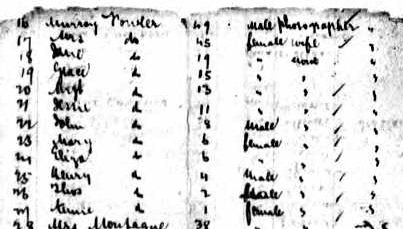 16 Murray Fowler 49 Male phographer "
17 Mrs do 45 female wife "
18 Jane do 19 " "
19 Grace do 15 " " "
20 do 13 " " "
21 Jessie do 11 " " "
22 John do 8 Male " "
23 Mary do 6 female " "
24 Eliza do 6 " " "
25 Henry do 4 Male " "
26 Thos do 2 " "
27 do 1 female " "
28 Mrs Montague 38